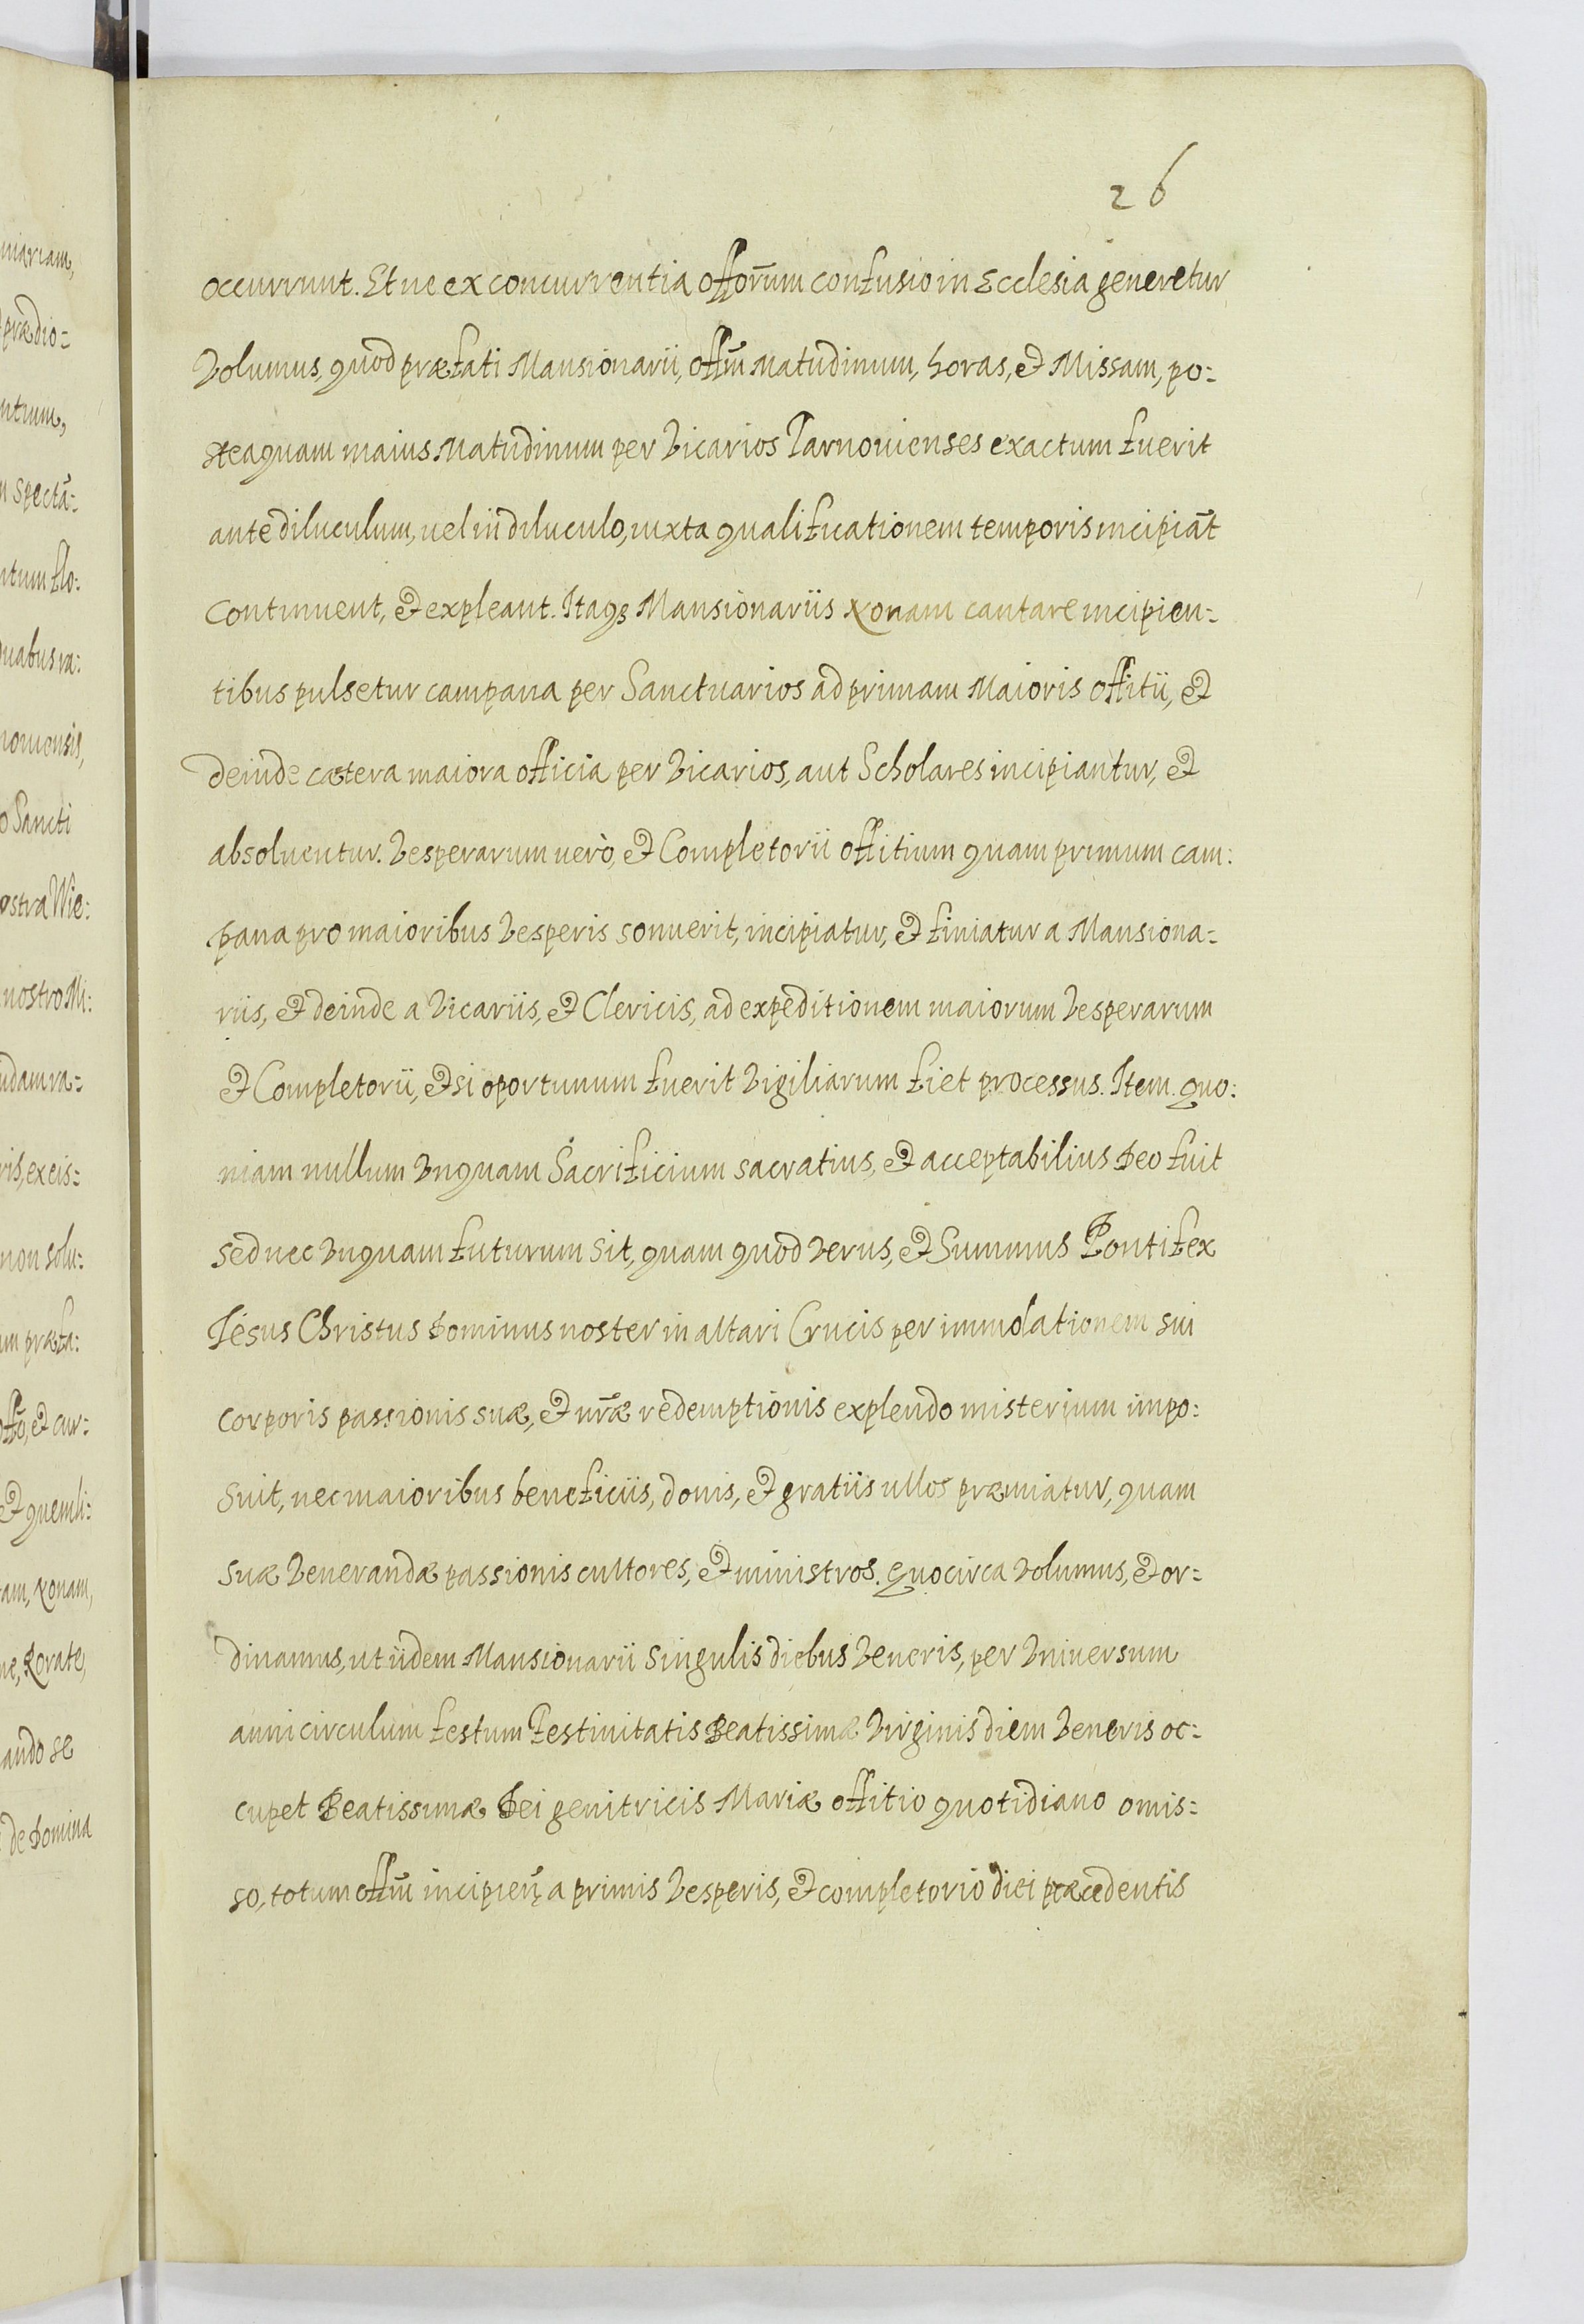 26
occurrunt. Et ne ex concurrentia offorũm confusio in Ecclesia generetur
Volumus, quod præfati Mansionarii, offũm Matudinum, horas, et Missam, po:
steaquam maius Matudinum per Vicarios Tarnouienses exactum fuerit
ante diluculum, uel in diluculo, iuxta qualificationem temporis incipiãt
continuent, et expleant. Itaq3 Mansionariis Xonam cantare incipien:
tibus pulsetur campana per Sanctuarios ad primam Maioris offitii, et
deinde cætera maiora officia per Vicarios, aut Scholares incipiantur, et
absoluentur. Vesperarum uerò, et Completorii offitium quam primum cam:
pana pro maioribus Vesperis sonuerit, incipiatur, et finiatur a Mansiona:
riis, et deinde a Vicariis, et Clericis, ad expeditionem maiorum Vesperarum
et Completorii, et si oportunum fuerit Vigiliarum fiet processus. Item. quo:
niam nullum Vnquam Sacrificium sacratius, et acceptabilius Deo fuit
sed nec Vnquam futurum sit, quam quod Verus, et Summus Pontifex
Iesus Christus Dominus noster in altari Crucis per immolationem sui
corporis passionis suæ, et nr̃æ redemptionis explendo misterium impo:
suit, nec maioribus beneficiis, donis, et gratiis ullos præmiatur, quam
suæ Venerandæ passionis cultores, et ministros. Quocirca Volumus, et or:
dinamus, ut iidem Mansionarii singulis diebus Veneris, per Vniversum
anni circulum festum Festiuitatis Beatissimæ Virginis diem Veneris oc:
cupet Beatissimæ Dei genitricis Mariæ offitio quotidiano omis:
so, totum offũm incipien̄ a primis Vesperis, et completorio diei præcedentis